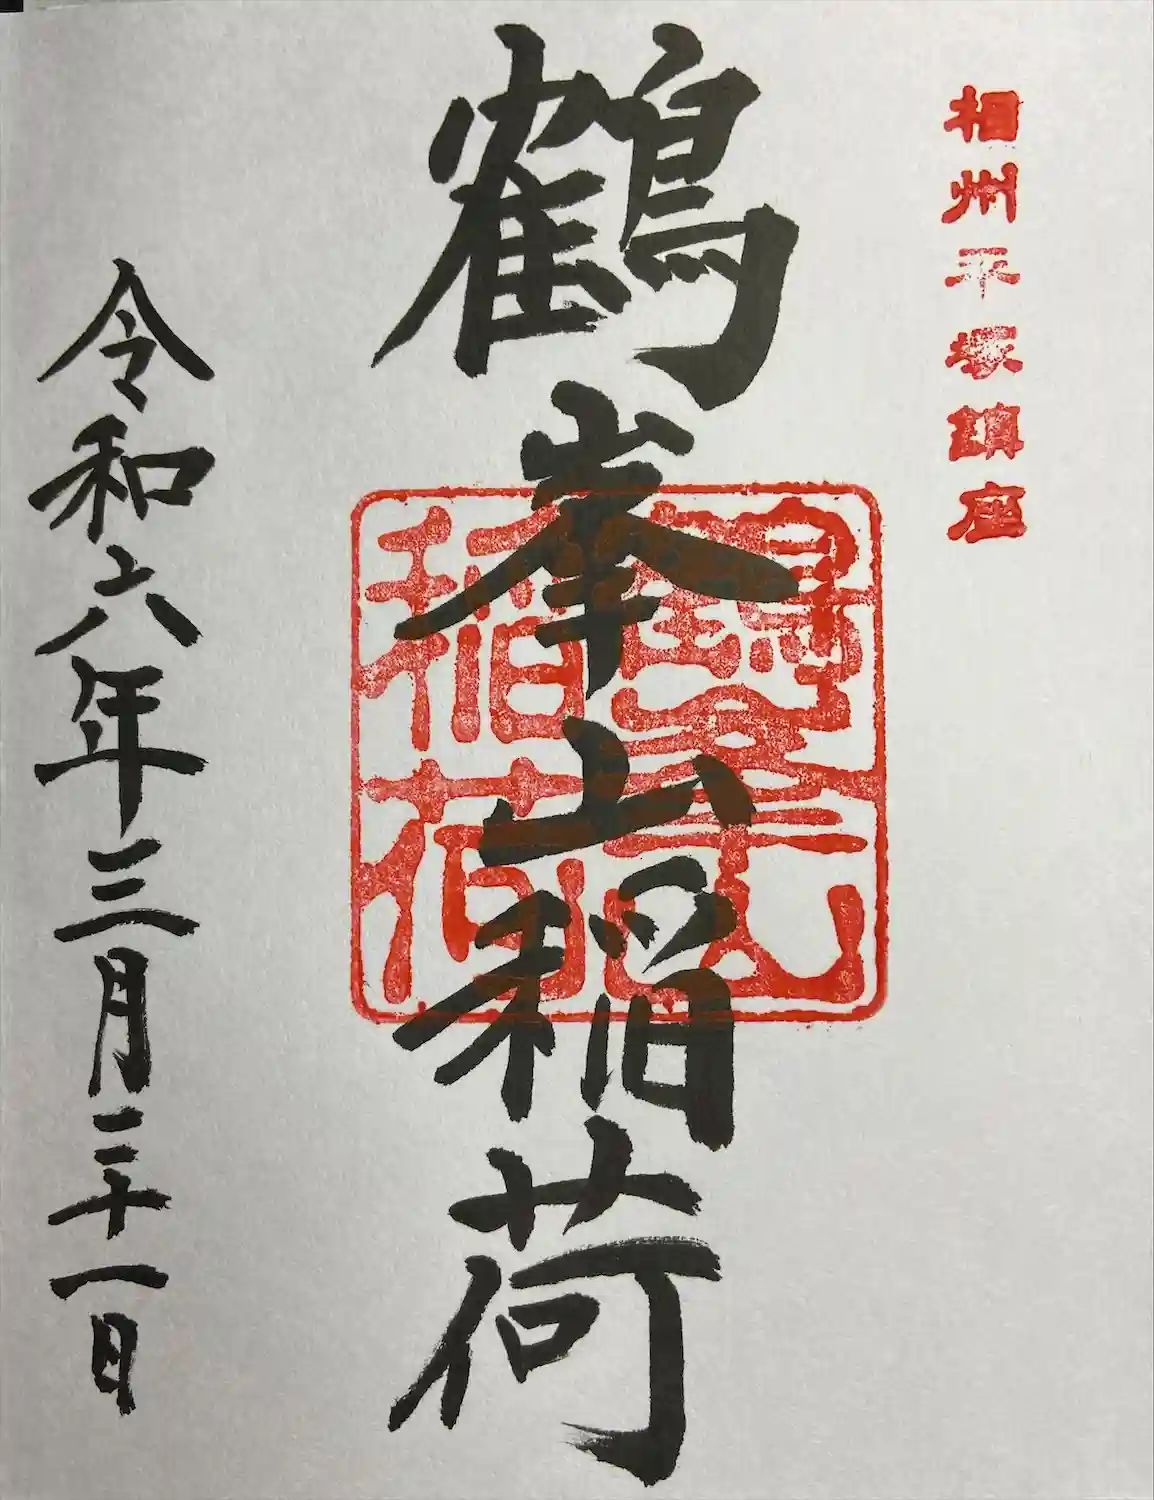 相州平塚鎮座
鶴峯山稲荷
鶴峯山
稲荷
令和六年三月三十一日